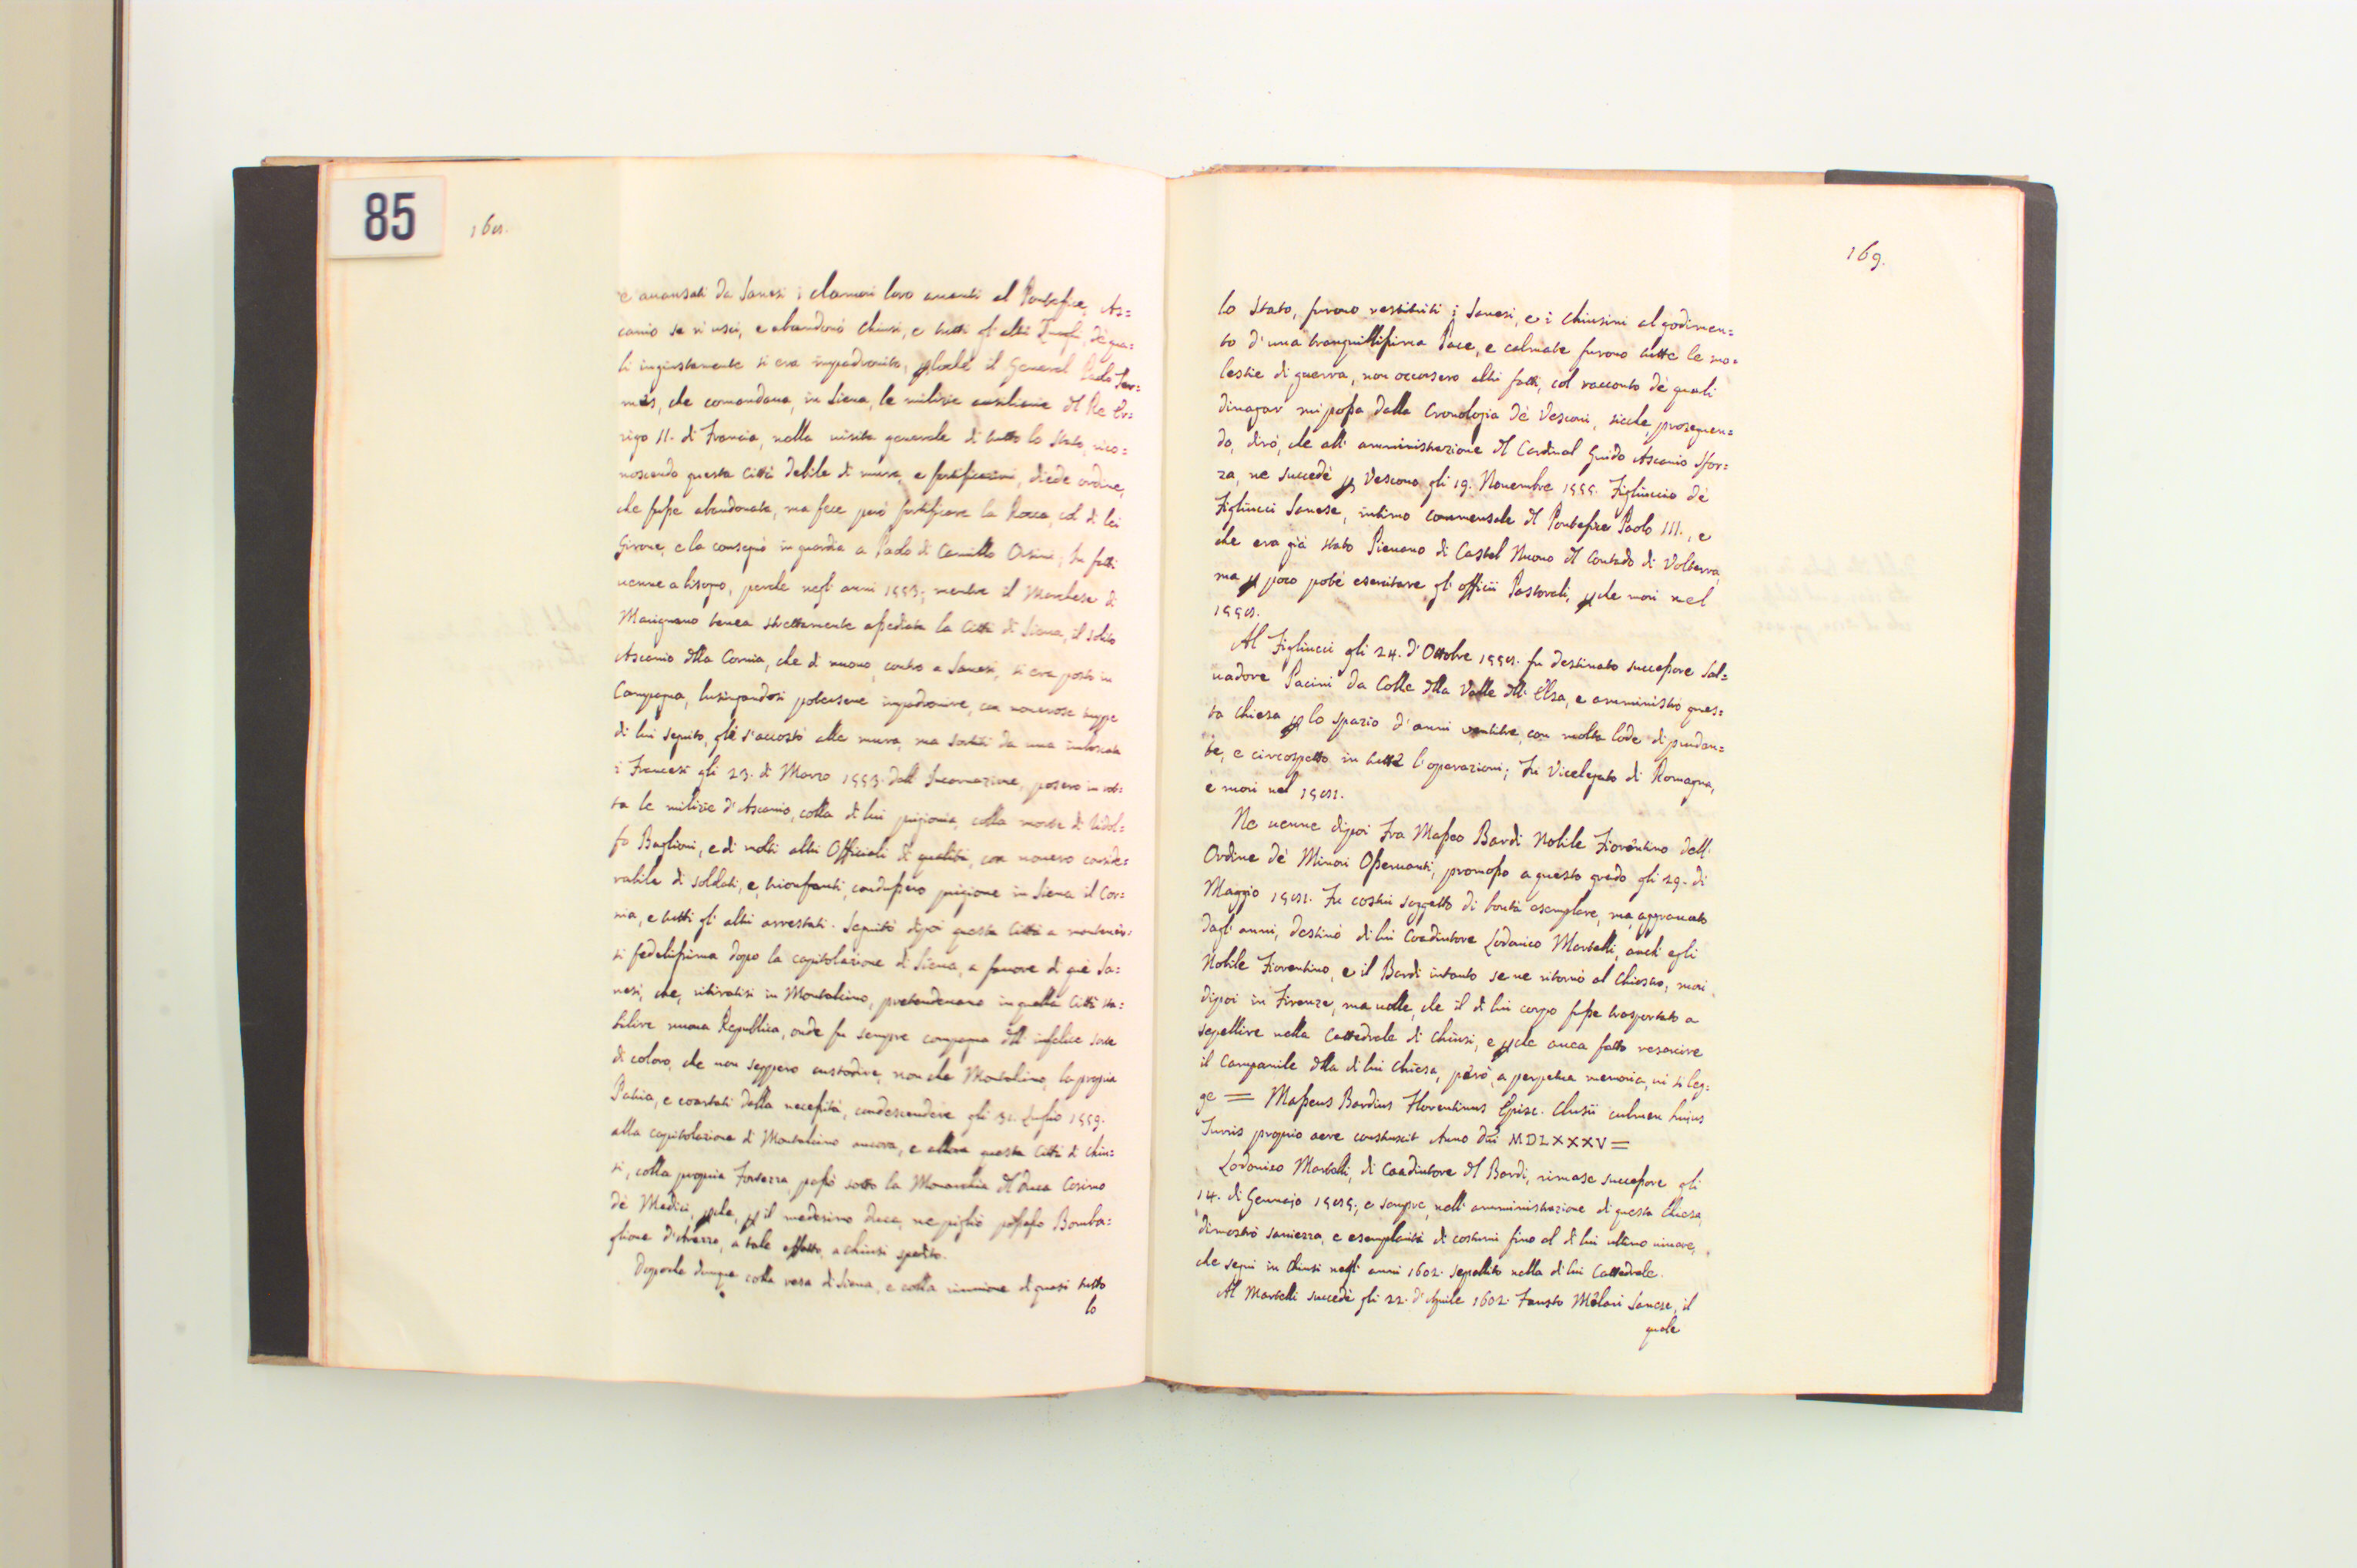 85
168.
e auansati da Sanesi i clamori loro auanti al Pontefice, As=
canio se ri uscì, e abandonò Chiusi, e tutti gl'altri Luoghi, de qua=
li ingiustamente si era impadronito, il General Paolo Ter=
mes, che comandaua, in Siena, le milizie ausiliarie del Re Er=
rigo II. di Francia, nella uisita generale di tutto lo Stato, rico=
noscendo questa Città debile di mura, e fortificazioni, diede ordine,
che fusse abandonata, ma fece però fortificare la Rocca, col di lei
Girone, e la consegnò in guardia a Paolo di Camillo Orsini; In fatti
uenne a bisogno, perche negl'anni 1553; mentre il Marchese di
Marignano tenea strettamente assediata la Città di Siena, il solito
Ascanio della Cornia, che di nuouo, contro a Sanesi, si era posto in
Campagna, lusingandosi potersene impadronire, con nouerose truppe
di lui seguito, gle s'accostò alle mura, ma sortiti da una imboscata
i Francesi gli 23. di Marzo 1553. dall'Incarnazione, posero in rot=
ta le milizie d'Ascanio, colla di lui prigionia, colla morte di Ridol=
fo Baglioni, e di molti altri Officiali di qualità, con nouero conside=
rabile di soldati, e, trionfanti, condussero prigione in Siena il Cor=
nia, e tutti gl'altri arrestati. Seguitò dipoi questa Città a mantener=
si fedelissima dopo la capitolazione di Siena, a fauore di que Sa=
nesi, che, ritiratisi in Montalcino, pretendeuano in quella Città sta=
bilire nuoua Republica, onde fu sempre compagna dell'infelice sorte
di coloro, che non seppero custodire, non che Montalcino, la propria
Patria, e coartati dalla necessità, condescendere gli 31. Luglio 1559.
alla capitolazione di Montalcino ancora, e allora questa Città di Chiu=
si, colla propria Fortezza, passò sotto la Monarchia del Duca Cosimo
de Medici, perche, per il medesimo Duca, ne pigliò possesso Bomba=
glione d'Arezzo, a tale effetto, a Chiusi spedito.
Doppoche dunque colla resa di Siena, e colla riunione di quasi tutto
lo
169.
lo Stato, furono restituiti i Sanesi, e i Chiusini al godimen=
to d'una tranquillissima Pace, e calmate furono tutte le mo=
lestie di guerra, non occorsero altri fatti, col racconto de quali
diuagar mi possa dalla Cronologia de Vescoui, sicche, proseguen=
do, dirò, che all'amministrazione del Cardinal Guido Ascanio Sfor=
za, ne succedè per Vescouo gli 19. Nouembre 1555. Figliuccio de
Figliucci Sanese, intimo commensale del Pontefice Paolo III., e
che era già stato Pieuano di Castel Nuouo del Contado di Volterra,
ma per poco potè esercitare gl'officii Pastorali, perche morì nel
1558.
Al Figliucci gli 24. d'Ottobre 1558. fu destinato successore Sal=
uadore Pacini da Colle della Valle dell'Elsa, e amministrò ques=
ta Chiesa per lo spazio d'anni ventitre, con molta lode di pruden=
te, e circospetto in tutte l'operazioni; Fu Vicelegato di Romagna,
e morì nel 1581.
Ne uenne dipoi Fra Masseo Bardi Nobile Fiorentino dell'
Ordine de Minori Osseruanti, promosso a questo grado gli 29. di
Maggio 1581. Fu costui soggetto di bontà esemplare, ma, aggrauato
dagl'anni, destinò di lui Coadiutore Lodouico Martelli, anch'egli
Nobile Fiorentino, e il Bardi intanto se ne ritornò al Chiostro, morì
dipoi in Firenze, ma uolle, che il di lui corpo fusse trasportato a
sepellire nella Cattedrale di Chiusi, e perche auea fatto resarcire
il Campanile della di lui Chiesa, però, a perpetua memoria, ui si leg=
ge = Masseus Bardius Florentinus Episc. Clusii culmen huius
Turris proprio aere construxit Anno Dñi MDLXXXV =
Lodouico Martelli, di Coadiutore del Bardi, rimase successore gli
14. di Gennajo 1585., e sempre, nell'amministrazione di questa Chiesa,
dimostrò sauiezza, e esemplarità di costumi fino al di lui ultimo uiuere,
che seguì in Chiusi negl'anni 1602. sepellito nella di lui Cattedrale.
Al Martelli succedè gli 22. d'Aprile 1602. Fausto Mallari Sanese, il
quale